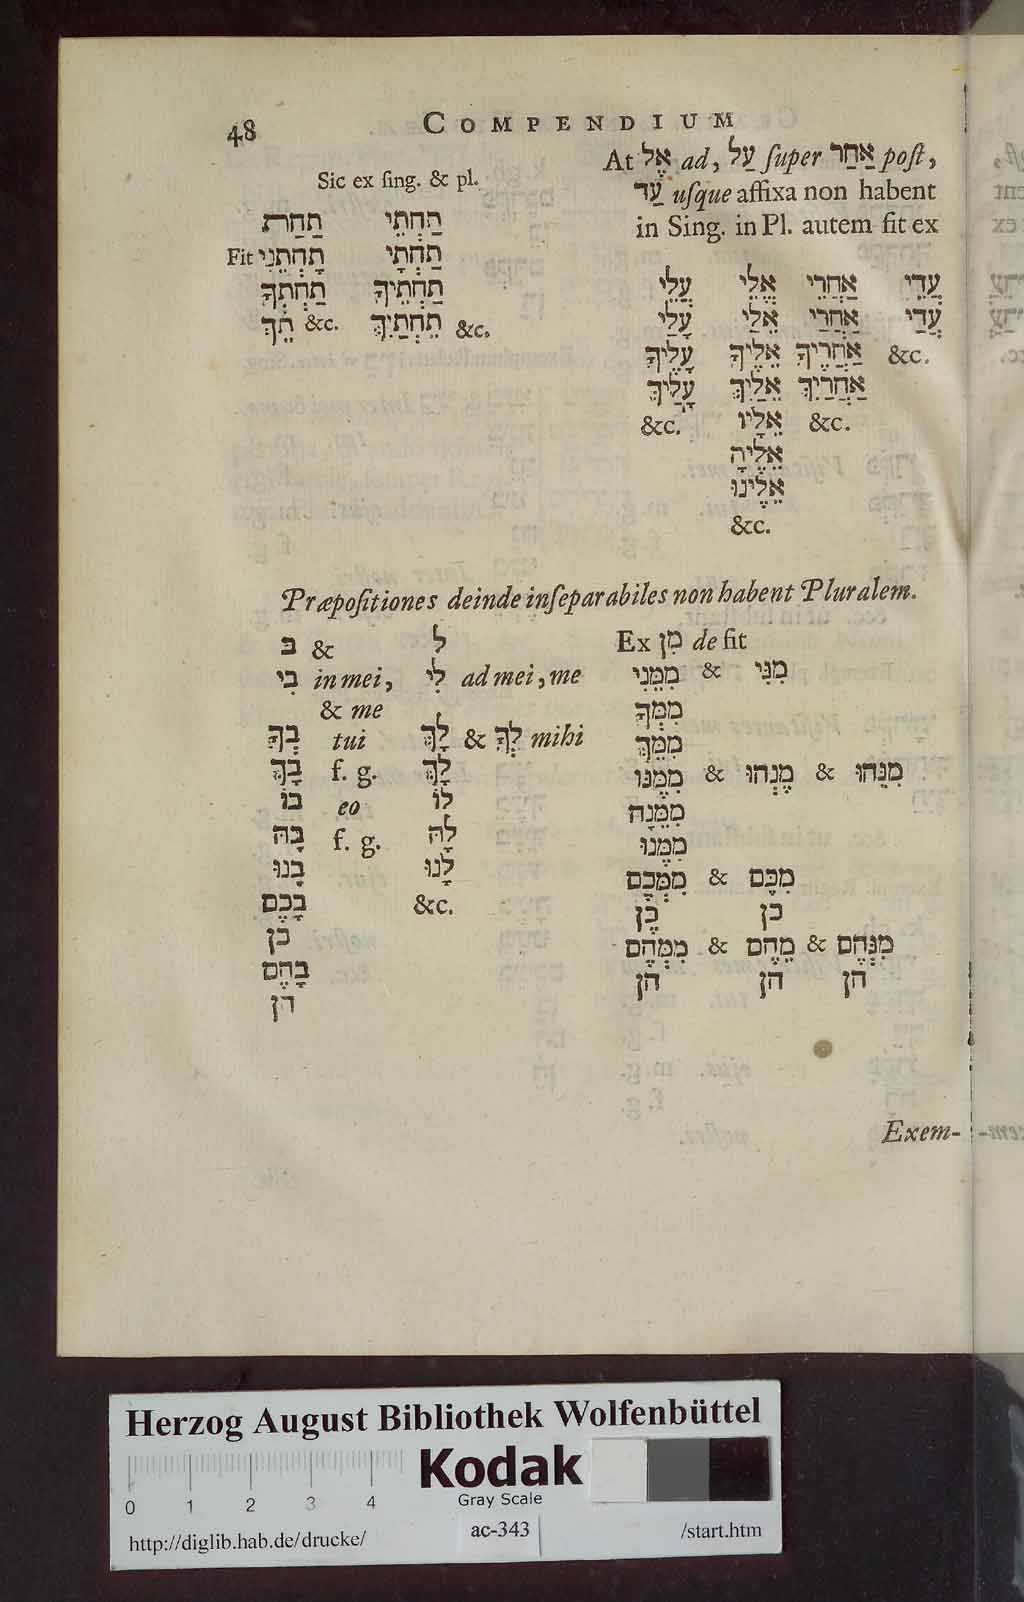 48 COMPENDIUM
Sic ex ſing. & pl.
תַחַת תַחְתֵי
Fit תַחְתֵנִי תַחְתָי
תַחְתְךָ תַחְתֵיךָ
תֵךְ &c. תֵחְתַיִךְ &c.
At אֶל ad, עַל ſuper אַחַר poſt,
עַד uſque affixa non habent
in Sing. in Pl. autem fit ex
עֲלֵי אֱלֵי אַחֲרֵי עֲדֵי
עָלַי אֵלַי אַחֲרַי עֲדַי
עָלֶיךָ אֵלֶיךָ אַחֲרֶיךָ &c.
עָלַיִךְ אֵלַיִךְ אַחֲרַיִךְ
&c. אֵלָיו &c.
אֵלֶיהָ
אֵלֶינוּ
&c.
Præpoſitiones deinde inſeparabiles non habent Pluralem.
בּ & ל
בִי in mei, לִי ad mei, me
& me
בְךָ tui לָךְ & לְךָ mihi
בָךְ f. g. לָךְ
בוֹ eo לוֹ
בָהּ f. g. לָהּ
בָנוּ לָנוּ
בָכֶם &c.
כֶן
בָהֶם
הן
Ex מִן de fit
מִמֵּנִי & מִנִּי
מִמְּךָ
מִמֵּךְ
מִמֶּנּוּ & מֶנְהוּ & מִנֵּהוּ
מִמֵּנָה
מִמֶּנוּ
מִמְּכֶם & מִכֶּם
כֶן כן
מִמְּהֶם & מֵהֶם & מִנְּהֶם
הֶן הן הן
Exem-
Herzog August Bibliothek Wolfenbüttel
Kodak
Gray Scale
0 1 2 3 4
http://diglib.hab.de/drucke/ ac-343 /start.htm